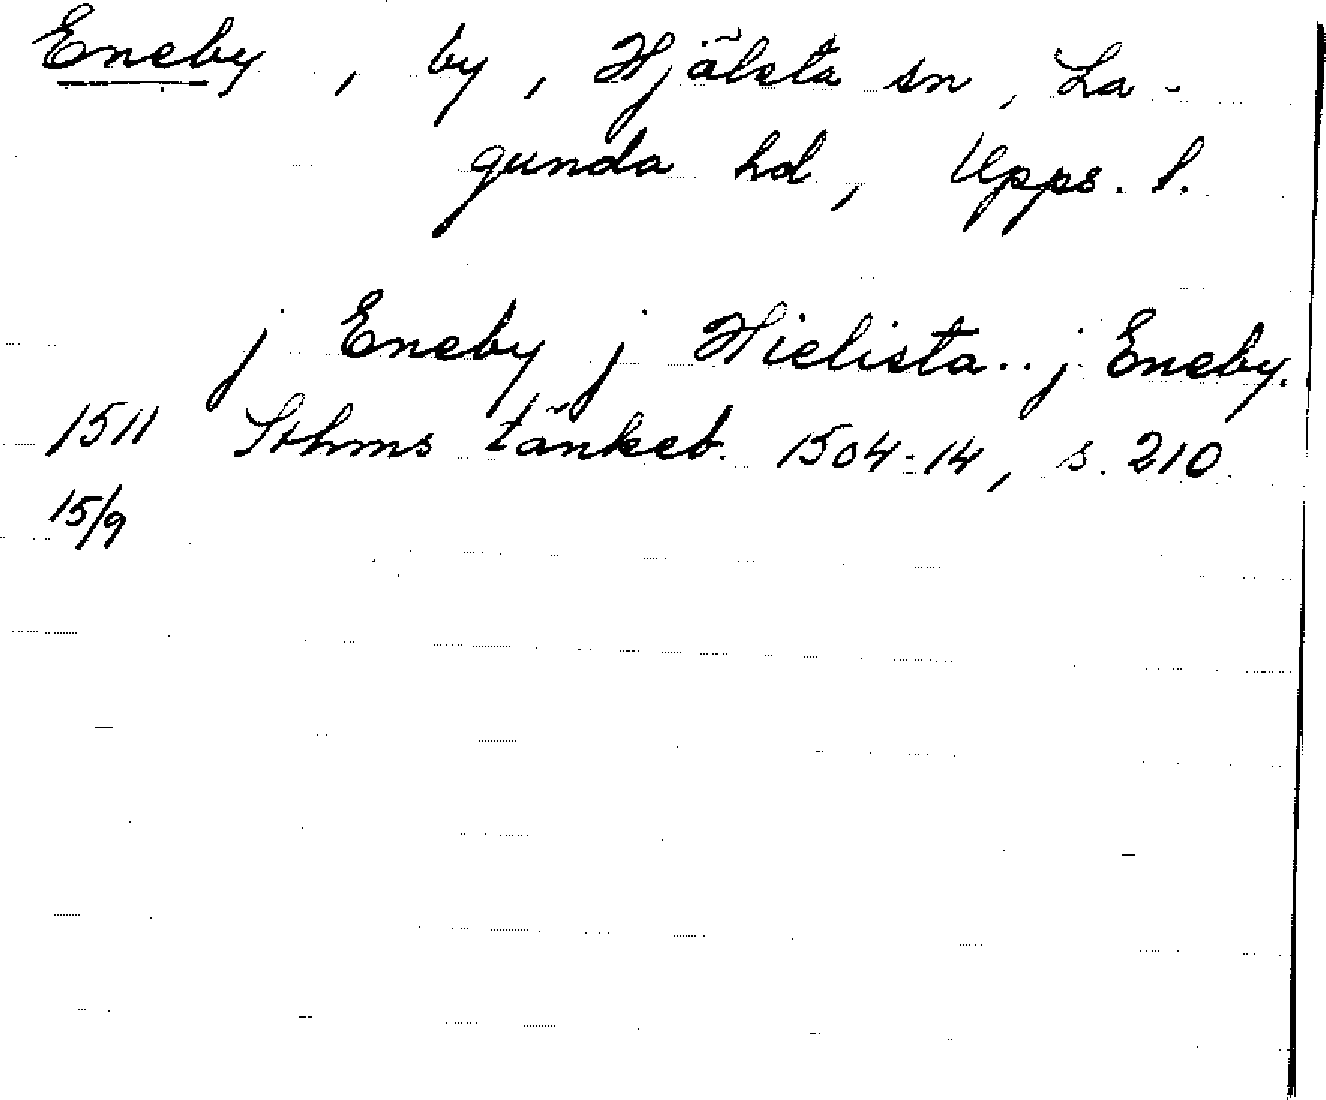 Eneby, by, Hjälsta sn, La-
gunda hd, Upps. l.
j Eneby j Hielista.. j Eneby.
1511 Sthms tänkeb. 1504-14, s. 210
15/9